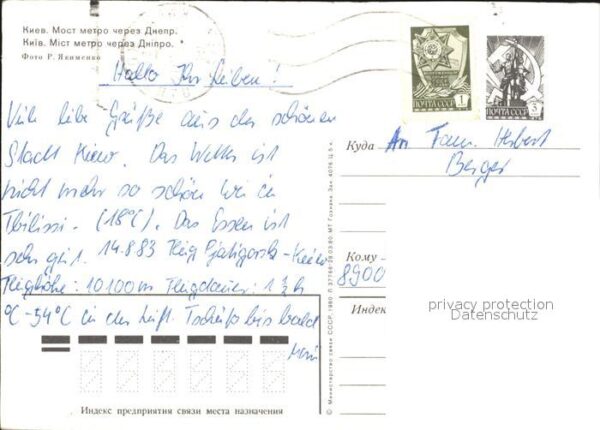 Киев. Мост метро через Днепр.
Київ. Міст метро через Дніпро.
Фото Р. Якименко
Hallo Ihr Lieben!
Viele liebe Grüße aus der schönen
Stadt Kiew. Das Wetter ist
nicht mehr so schön wie in
Tbilissi. (18°C). Das Essen ist
sehr gut. 14.8.83 Flug Pjatigorsk-Kiew
Flughöhe: 10100m Flugdauer: 1½ h
°C -54°C in der Luft. Tschüß bis bald
ПОЧТА СССР 1
ПОЧТА СССР
Куда An Fam. Herbert
Berger
Кому
8900
Индекс
privacy protection
Datenschutz
© Министерство связи СССР, 1980
Индекс предприятия связи места назначения